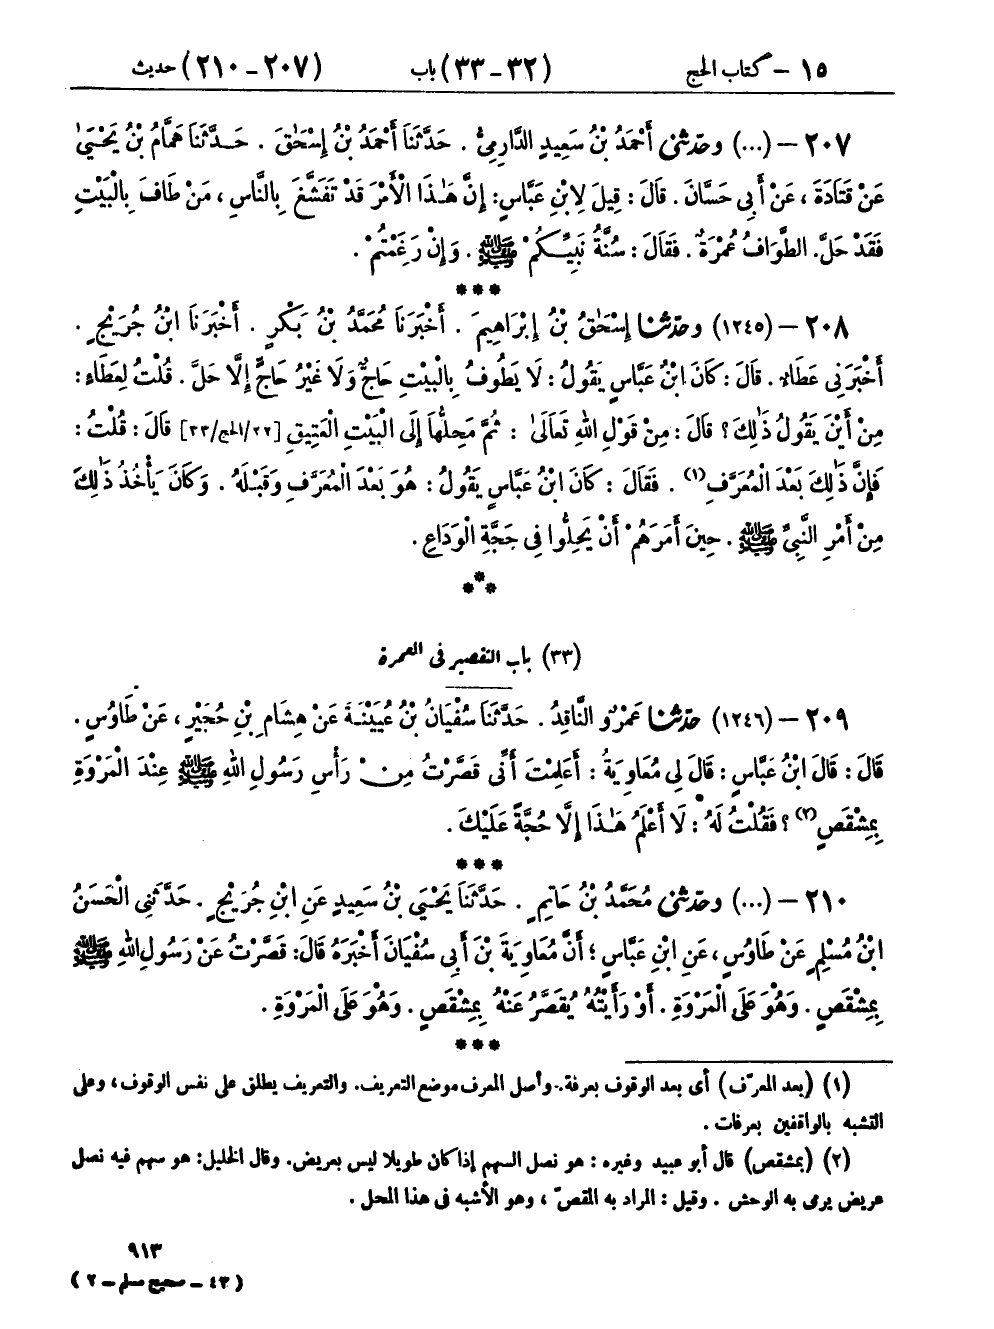 ١٥ – كتاب الحج (٣٢-٣٣) باب (٢٠٧-٢١٠) حديث
٢٠٧ – (...) وحَدَّثَنِى أَحْمَدُ بْنُ سَعِيدٍ الدَّارِمِىُّ . حَدَّثَنَا أَحْمَدُ بْنُ إِسْحَٰقَ . حَدَّثَنَا هَمَّامُ بْنُ يَحْيَىٰ
عَنْ قَتَادَةَ ، عَنْ أَبِى حَسَّانَ . قَالَ : قِيلَ لِابْنِ عَبَّاسٍ: إِنَّ هَٰذَا الْأَمْرَ قَدْ تَفَشَّغَ بِالنَّاسِ ، مَنْ طَافَ بِالْبَيْتِ
فَقَدْ حَلَّ. الطَّوَافُ عُمْرَةٌ . فَقَالَ : سُنَّةُ نَبِيِّكُمْ ﷺ . وَإِنْ رَغَمْتُمْ .
***
٢٠٨ – (١٢٤٥) وحَدَّثَنَا إِسْحَٰقُ بْنُ إِبْرَاهِيمَ . أَخْبَرَنَا مُحَمَّدُ بْنُ بَكْرٍ . أَخْبَرَنَا ابْنُ جُرَيْجٍ .
أَخْبَرَنِى عَطَاءٌ . قَالَ : كَانَ ابْنُ عَبَّاسٍ يَقُولُ : لَا يَطُوفُ بِالْبَيْتِ حَاجٌّ وَلَا غَيْرُ حَاجٍّ إِلَّا حَلَّ . قُلْتُ لِعَطَاءٍ :
مِنْ أَيْنَ يَقُولُ ذَٰلِكَ ؟ قَالَ : مِنْ قَوْلِ اللهِ تَعَالَىٰ : ثُمَّ مَحِلُّهَا إِلَى الْبَيْتِ الْعَتِيقِ [٢٢/الحج/٣٣] قَالَ : قُلْتُ :
فَإِنَّ ذَٰلِكَ بَعْدَ الْمُعَرَّفِ (١) . فَقَالَ : كَانَ ابْنُ عَبَّاسٍ يَقُولُ : هُوَ بَعْدَ الْمُعَرَّفِ وَقَبْلَهُ . وَكَانَ يَأْخُذُ ذَٰلِكَ
مِنْ أَمْرِ النَّبِىِّ ﷺ . حِينَ أَمَرَهُمْ أَنْ يَحِلُّوا فِى حَجَّةِ الْوَدَاعِ .
***
(٣٣) باب التقصير فى العمرة
٢٠٩ – (١٢٤٦) حَدَّثَنَا عَمْرٌو النَّاقِدُ . حَدَّثَنَا سُفْيَانُ بْنُ عُيَيْنَةَ عَنْ هِشَامِ بْنِ حُجَيْرٍ ، عَنْ طَاوُسٍ .
قَالَ : قَالَ ابْنُ عَبَّاسٍ : قَالَ لِى مُعَاوِيَةُ : أَعَلِمْتَ أَنِّى قَصَّرْتُ مِنْ رَأْسِ رَسُولِ اللهِ ﷺ عِنْدَ الْمَرْوَةِ
بِمِشْقَصٍ (٢) ؟ فَقُلْتُ لَهُ : لَا أَعْلَمُ هَٰذَا إِلَّا حُجَّةً عَلَيْكَ .
***
٢١٠ – (...) وحَدَّثَنِى مُحَمَّدُ بْنُ حَاتِمٍ . حَدَّثَنَا يَحْيَىٰ بْنُ سَعِيدٍ عَنِ ابْنِ جُرَيْجٍ . حَدَّثَنِى الْحَسَنُ
ابْنُ مُسْلِمٍ عَنْ طَاوُسٍ ، عَنِ ابْنِ عَبَّاسٍ ؛ أَنَّ مُعَاوِيَةَ بْنَ أَبِى سُفْيَانَ أَخْبَرَهُ قَالَ: قَصَّرْتُ عَنْ رَسُولِ اللهِ ﷺ
بِمِشْقَصٍ . وَهُوَ عَلَى الْمَرْوَةِ . أَوْ رَأَيْتُهُ يُقَصَّرُ عَنْهُ بِمِشْقَصٍ . وَهُوَ عَلَى الْمَرْوَةِ .
***
(١) (بعد المعرّف) أى بعد الوقوف بعرفة. وأصل المعرف موضع التعريف. والتعريف يطلق على نفس الوقوف ، وعلى
التشبه بالواقفين بعرفات .
(٢) (بمشقص) قال أبو عبيد وغيره : هو نصل السهم إذا كان طويلا ليس بعريض. وقال الخليل: هو سهم فيه نصل
عريض يرمى به الوحش . وقيل : المراد به المقصّ ، وهو الأشبه فى هذا المحل .
٩١٣
(٤٣ – صحيح مسلم – ٢)